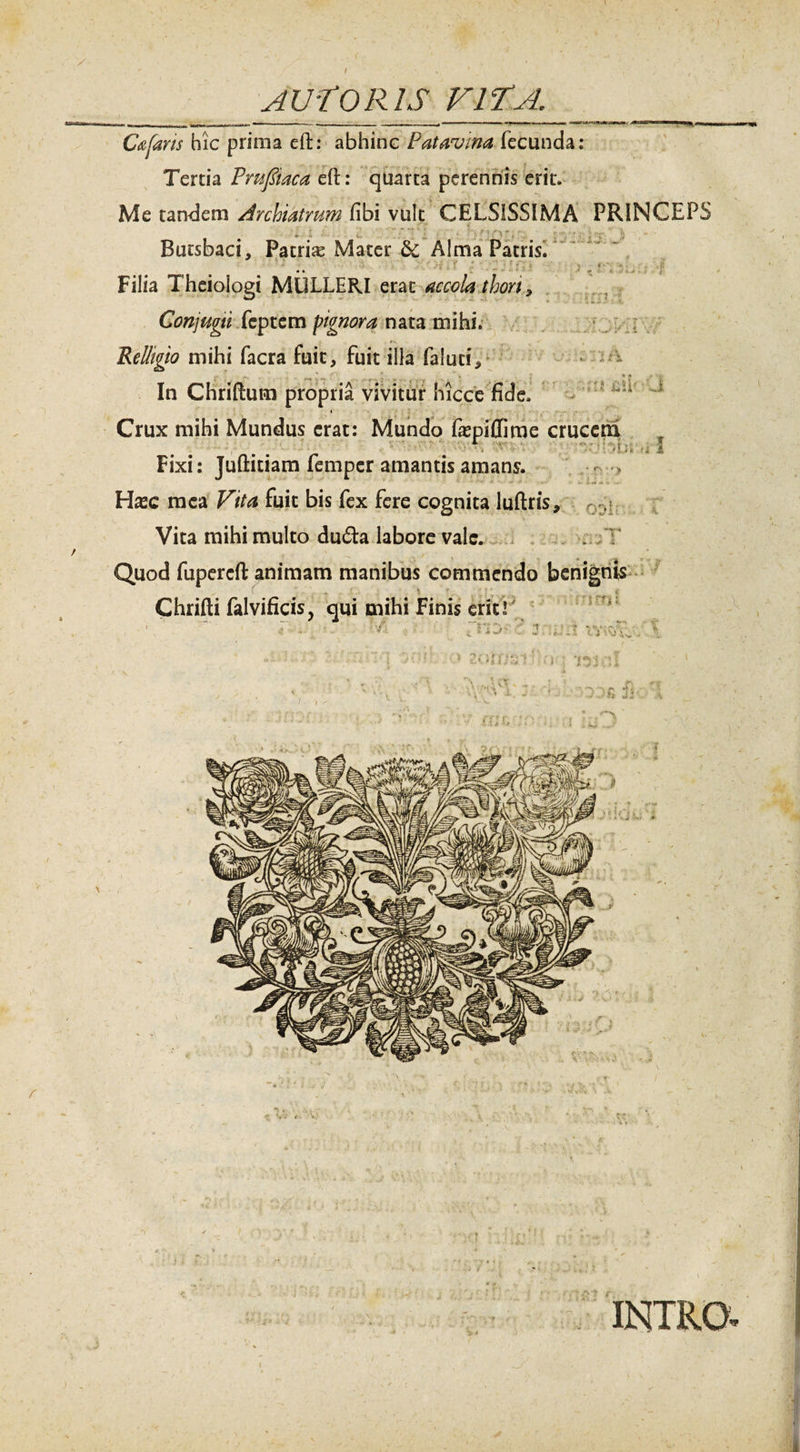 AUTORIS VITA.
Cæſaris hîc prima eſt: abhinc Patavina ſecunda:
Tertia Pruſsiaca eſt: quarta perennis erit.
Me tandem Archiatrum ſibi vult CELSISSIMA PRINCEPS
Butsbaci, Patriæ Mater & Alma Patris.
Filia Theiologi MÜLLERI erat accola thori,
Conjugii ſeptem pignora nata mihi.
Relligio mihi ſacra fuit, fuit illa ſaluti,
In Chriſtum propriâ vivitur hîcce fide.
Crux mihi Mundus erat: Mundo ſæpiſſime crucem
Fixi: Juſtitiam ſemper amantis amans.
Hæc mea Vita fuit bis ſex fere cognita luſtris,
Vita mihi multo ducta labore vale.
Quod ſupereſt animam manibus commendo benignis
Chriſti ſalvificis, qui mihi Finis erit!
INTRO-